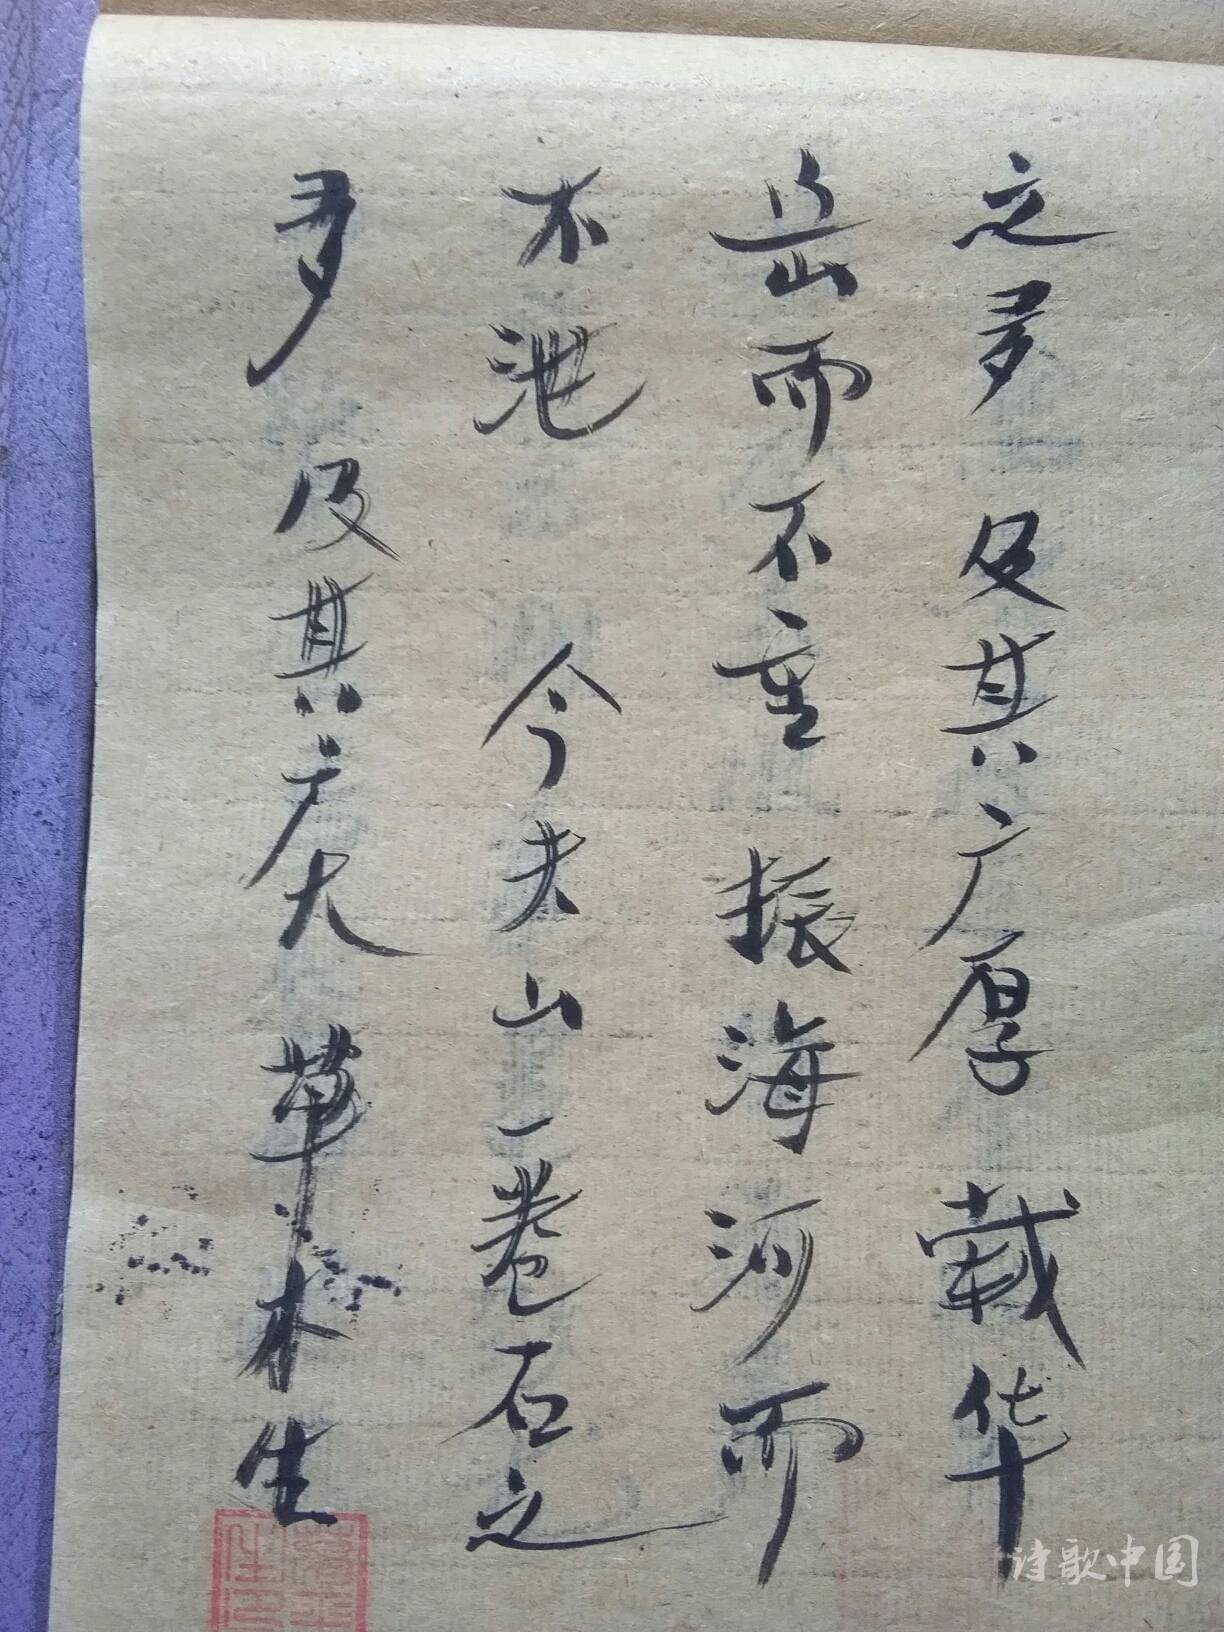 之多及其广厚载华
岳而不重振海河而
不泄今夫山一卷石之
多及其广大草木生
诗歌中国